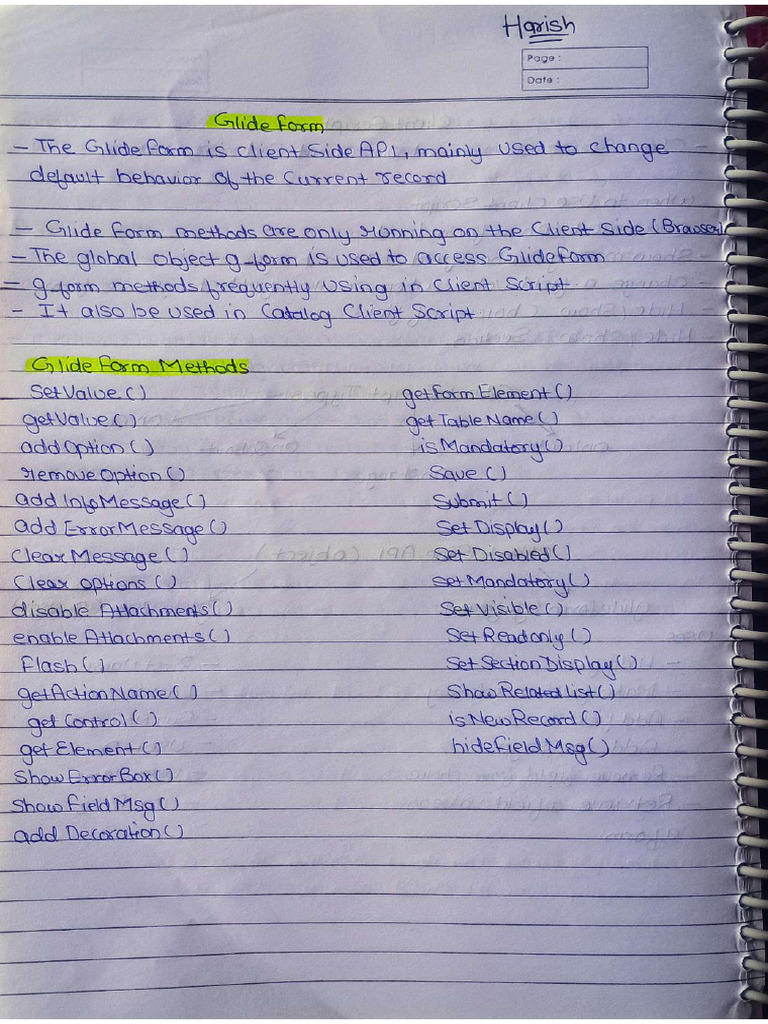 Harish
Page :
Date :
Glide form
- The Glide form is client Side API, mainly used to change
default behavior of the Current record
- Glide form methods are only running on the Client Side (Browser)
- The global object g-form is used to access Glideform
- g-form methods frequently using in client script
- It also be used in Catalog Client Script
Glide form Methods
SetValue ( )
getValue ( )
add Option ( )
remove Option ( )
add Info Message ( )
add Error Message ( )
Clear Message ( )
Clear Options ( )
disable Attachments ( )
enable Attachments ( )
Flash ( )
getAction Name ( )
get Control ( )
get Element ( )
Show Error Box ( )
Show field Msg ( )
add Decoration ( )
getForm Element ( )
get Table Name ( )
is Mandatory ( )
Save ( )
Submit ( )
Set Display ( )
Set Disabled ( )
Set Mandatory ( )
Set Visible ( )
Set Readonly ( )
Set Section Display ( )
Show Related List ( )
is New Record ( )
hide field Msg ( )